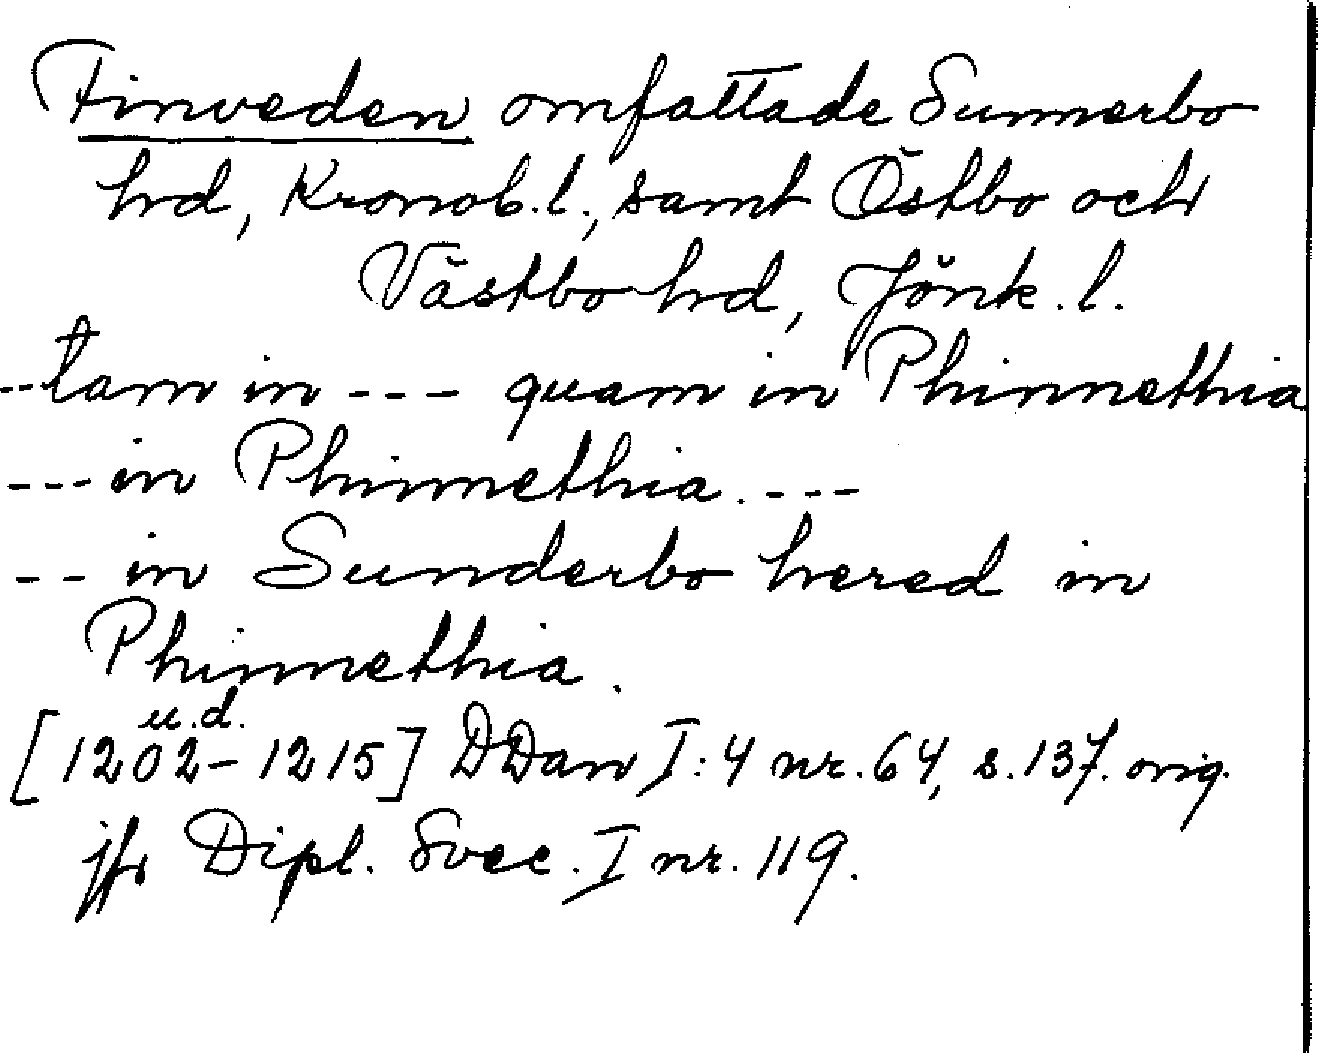 Finveden omfattade Sunnerbo
hd, Kronob. l., samt Östbo och
Västbo hd, Jönk. l.
-- tam in --- quam in Phinnethia
--- in Phinnethia. ---
-- in Sunderbo hered in
Phinnethia.
u.d.
[1202-1215] DDan I:4 nr. 64, s. 137. orig.
jfr Dipl. Svec. I nr. 119.